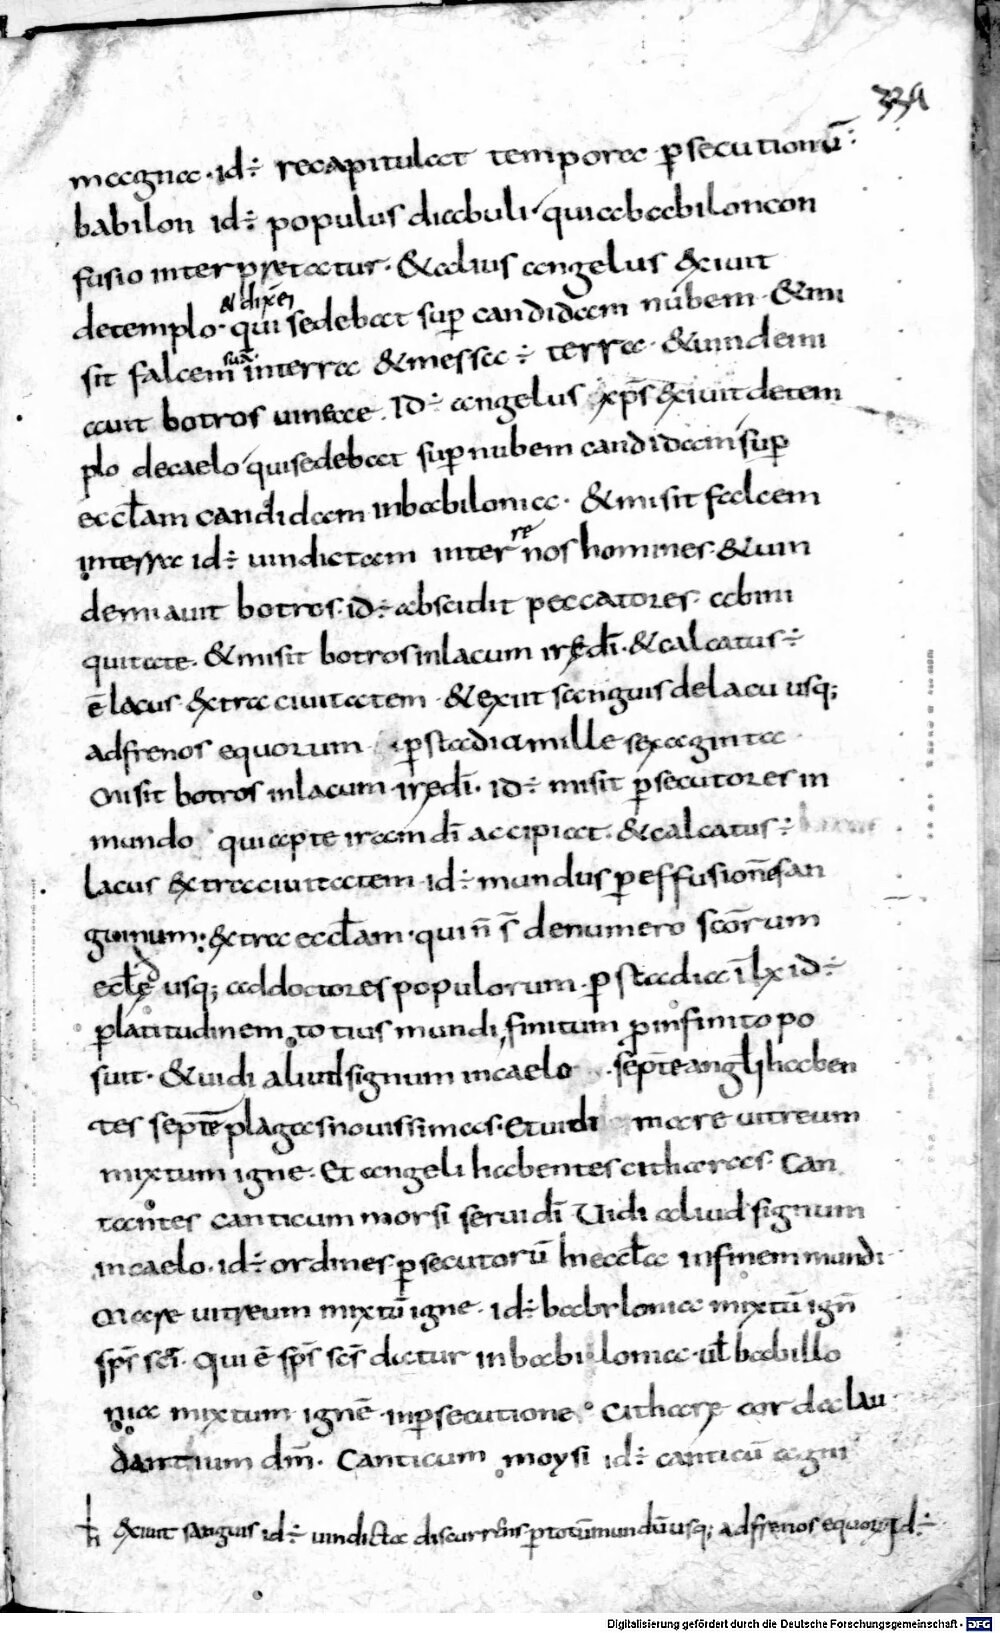 339
magna · id ÷ recapitulat tempora psecutionū ·
babilon id ÷ populus diabuli · qui a babilon con
fusio interpretatur · & alius angelus exiuit
& dixeī
de templo · qui sedebat sup candidam nubem · & mi
suā
sit falcem in terra & messa ÷ terra · & uindemi
auit botros uineae · Id ÷ angelus xp̄s exiuit de tem
plo de caelo qui sedebat sup nubem candidam sup
eccl̄am candidam in babilonia · & misit falcem
re
in terra id ÷ uindictam inter nos homines · & uin
demiauit botros · id ÷ abscidit peccatores · ab ini
quitate · & misit botros in lacum irę dī · & calcatus ÷
ē lacus · extra ciuitatem · & exiit sanguis de lacu usq;
ad frenos equorum p stadia mille sexaginta
Misit botros in lacum irę dī · id ÷ misit psecutores in
mundo qui apte iram dī accipiat · & calcatus ÷
lacus extra ciuitatem · id ÷ mundus p effusionē san
guinum · extra eccl̄am · qui n̄ s̄ de numero scōrum
eccl̄ę usq; ad doctores populorum · p stadia ī lx id ÷
p latitudinem totius mundi finitum p infinito po
suit · & uidi aliud signum in caelo · septē angl̄i haben
tes septē plagas nouissimas · Et uidi mare uitreum
mixtum igne · Et angeli habentes citharas · Can
tantes canticum morsi serui dī Uidi aliud signum
in caelo · id ÷ ordines psecutorū in eccl̄a in finem mundi ·
Mare uitreum mixtū igne · id ÷ babilonia mixtū ign̄
sps̄ scī · Qui ē sps̄ scs̄ datur in babilonia · ul̄ babillo
nia mixtum ignē in psecutione · Citharę corda lau
dantium dm̄ · Canticum moysi id ÷ canticū agni
h exiuit sanguis id ÷ uindicta discurrens p totū mundū usq; ad frenos equorū Id ÷
Digitalisierung gefördert durch die Deutsche Forschungsgemeinschaft - DFG